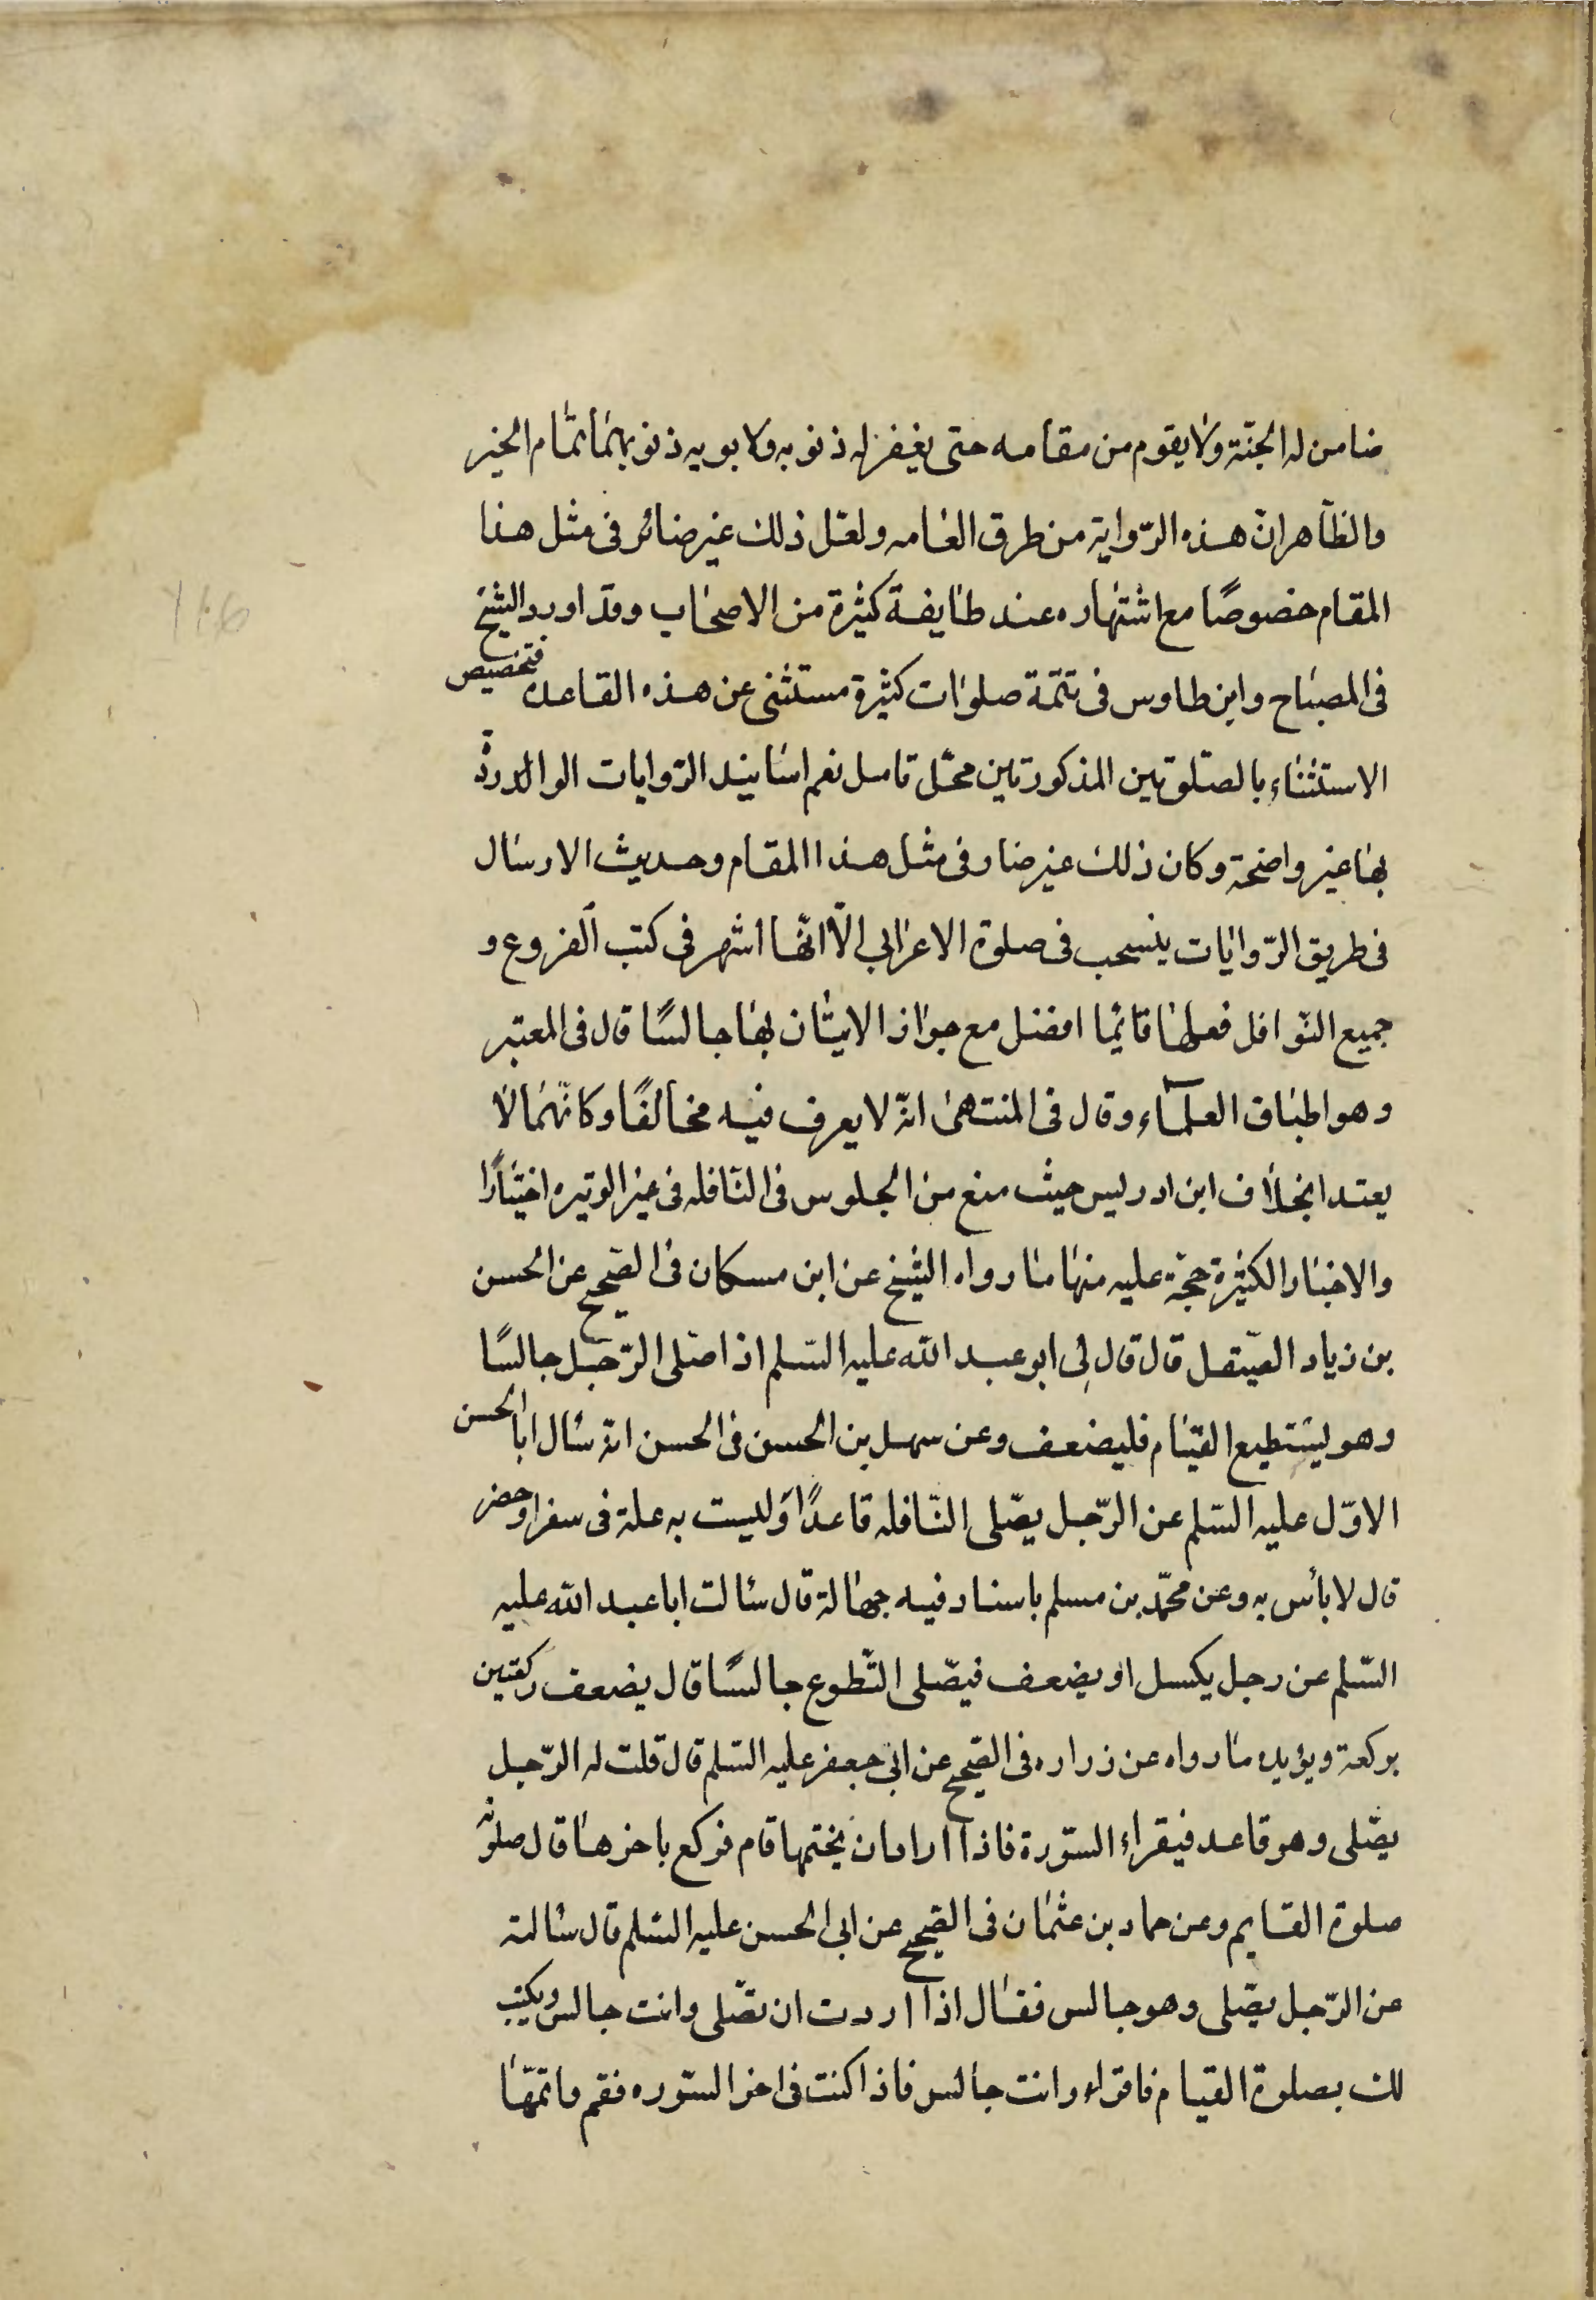 ضامن له الجنّة ولا يقوم من مقامه حتى يغفر له ذنوبه ولابويه ذنوبهما تمام الخبر
والظاهر انّ هذه الرّواية من طرق العامه ولعل ذلك غير ضائر فى مثل هذا
المقام خصوصًا مع اشتهاره عند طايفة كثيرة من الاصحاب وقد اورد الشيخ
فى المصباح وابن طاوس فى تتمّة صلوات كثيرة مستثنى عن هذه القاعده فتخصيص
الاستثناء بالصّلوتين المذكورتين محّل تامل نعم اسانيد الرّوايات الواردة
بها غير واضحة وكان ذلك غير ضار فى مثل هذا المقام وحديث الارسال
فى طريق الرّوايات ينسحب فى صلوة الاعرابي الّا انّها اشهر فى كتب الفروع و
جميع النّوافل فعلها قائمًا افضل مع جواز الاتيان بها جالسًا قال فى المعتبر
وهو اطباق العلماء وقال فى المنتهى انّه لا يعرف فيه مخالفًا وكانّهما لا
يعتد ابخلاف ابن ادريس حيث منع من الجلوس فى النّافله فى غير الوتيره اختيارًا
والاخبار الكثيرة حجّة عليه منها ما رواه الشيخ عن ابن مسكان فى الصّحيح عن الحسن
بن زياد الصّيقل قال قال لى ابو عبد الله عليه السّلم اذا صّلى الرّجل جالسًا
وهو يستطيع القيام فليضعف وعن سهل بن الحسن فى الحسن انّه سأل ابا الحسن
الاوّل عليه السّلم عن الرّجل يصّلى النّافله قاعدًا وليست به علة فى سفر او حضر
قال لا بأس به وعن محمّد بن مسلم باسناد فيه جهالة قال سألت ابا عبد الله عليه
السّلم عن رجل يكسل او يضعف فيصّلى التّطوع جالسًا قال يضعف ركعتين
بركعة ويؤيده ما رواه عن زراره فى الصّحيح عن ابى جعفر عليه السّلم قال قلت له الرّجل
يصّلى وهو قاعد فيقراء السّورة فاذا اراد ان يختمها قام فركع باخرها قال صلوته
صلوة القايم وعن حماد بن عثمان فى الصّحيح عن ابى الحسن عليه السّلم قال سألته
عن الرّجل يصّلى وهو جالس فقال اذا اردت ان تصّلى وانت جالس ويكتب
لك بصلوة القيام فاقراء وانت جالس فاذا كنت فى اخر السّوره فقم فاتمّها